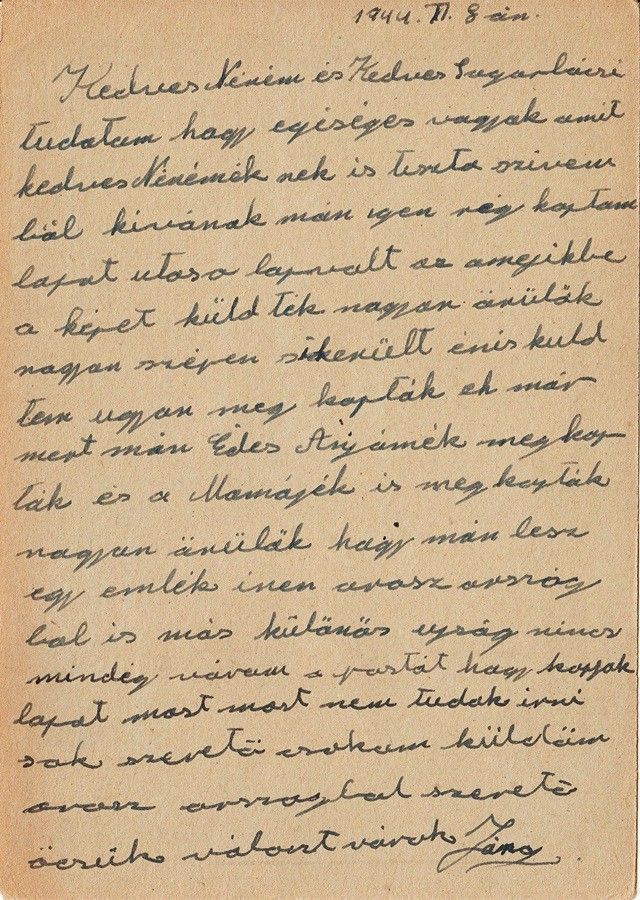 1944. VI. 8 án.
Kedves Néném és Kedves Sugarbácsi
tudatam hagy egéséges vagyak amit
kedves Nénémék nek is tiszta szivem
ből kivánok mán igen rég kaptam
lapat utaso lapvalt az amejikbe
a képet küldték nagyan örülök
nagyan szépen sikerült énis küld
tem ugyan meg kapták eh már
mert mán Édes Anyámék megkap
ták és a Mamájék is meg kapták
nagyan örülök hagy mán lesz
egy emlék inen arasz arszág
bal is más különös ujság nincs
mindég váram a pastát hagy kapjak
lapat mast mast nem tudak irni
sak szerető csokam küldöm
arasz arszagbal szerető
öcsük választ várok Jáno